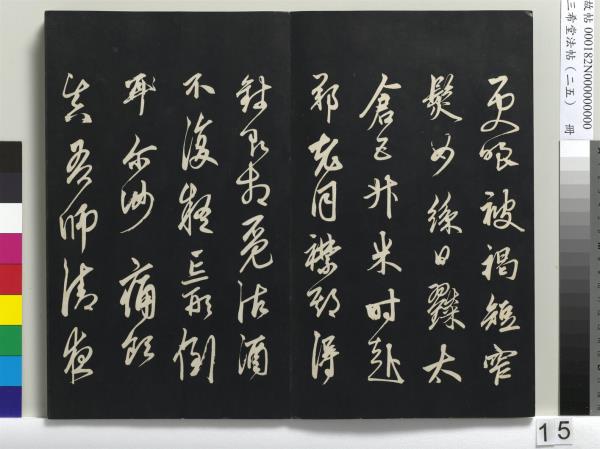 故帖 000182N000000000
三希堂法帖（二五） 冊
更嗤被褐短窄
鬢如絲日糴太
倉五升米时赴
鄭老同襟期得
錢即相覓沽酒
不復疑忘形倒
尔汝痛飲
真吾師清夜
15